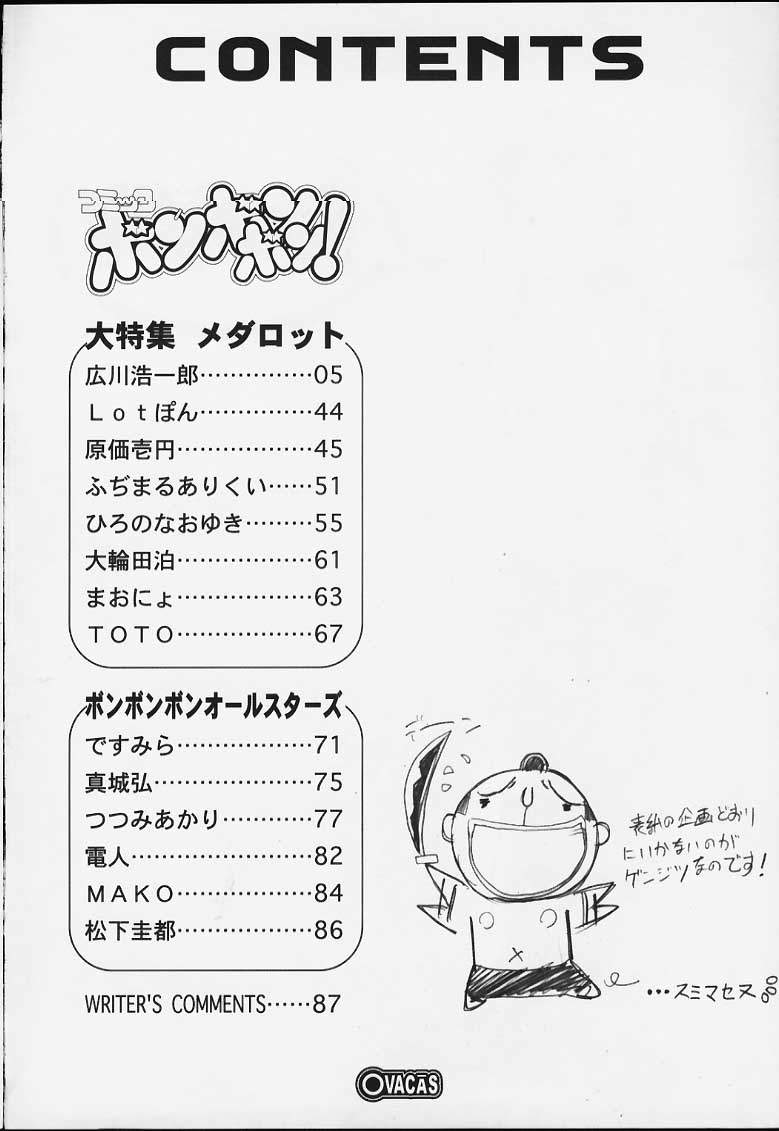 CONTENTS
コミック
ボンボンボン!
大特集 メダロット
広川浩一郎……………05
Lotぽん……………44
原価壱円………………45
ふぢまるありくい……51
ひろのなおゆき………55
大輪田泊………………61
まおにょ………………63
TOTO………………67
ボンボンボンオールスターズ
ですみら………………71
真城弘…………………75
つつみあかり…………77
電人……………………82
MAKO………………84
松下圭都………………86
WRITER'S COMMENTS……87
表紙の企画どおり
にいかないのが
ゲンジツなのです!
…スミマセヌ
OVACAS